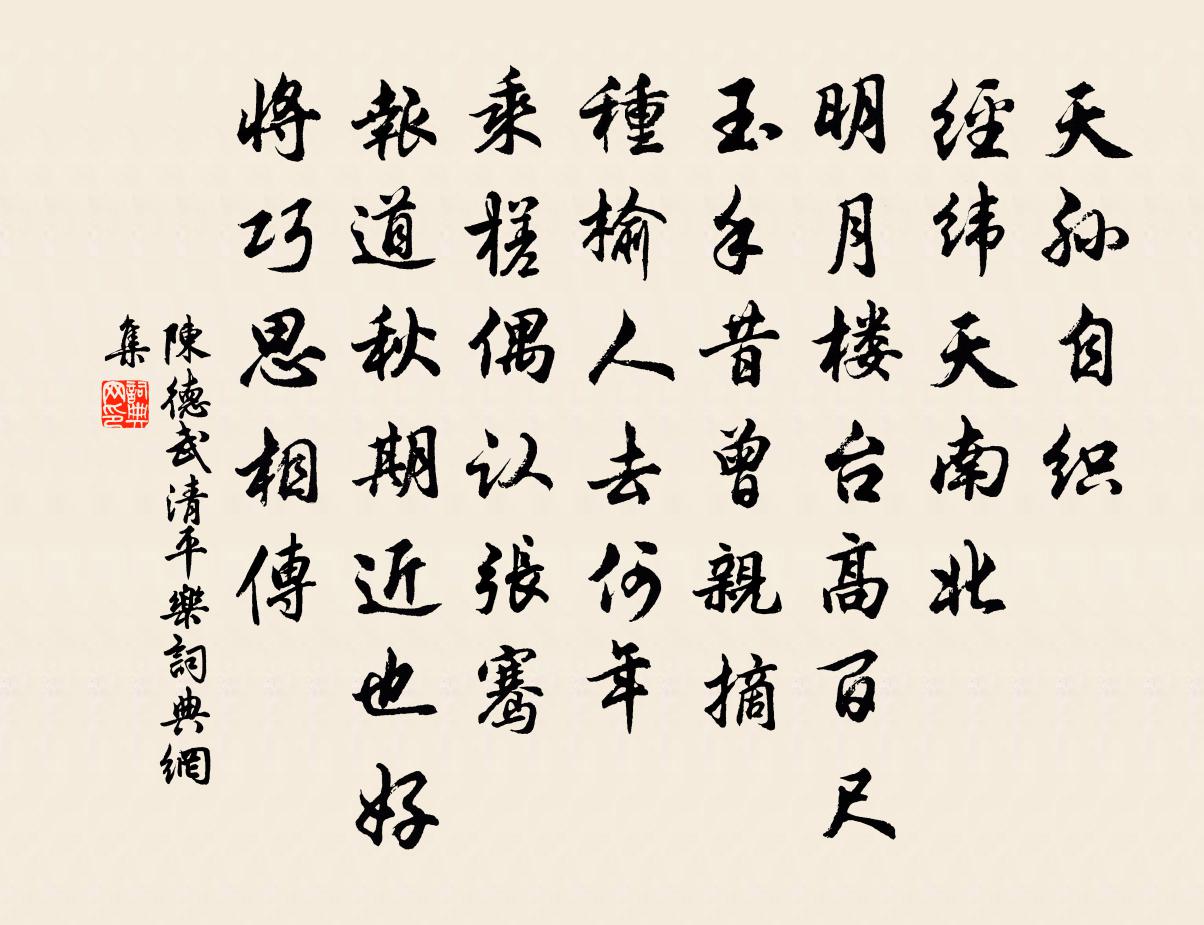 天孙自织
經纬天南北
明月楼台高百尺
玉手昔曾親摘
種榆人去何年
乘槎偶认張騫
報道秋期近也好
將巧思相傳
陳德武清平樂詞典網
集
詞典
网印